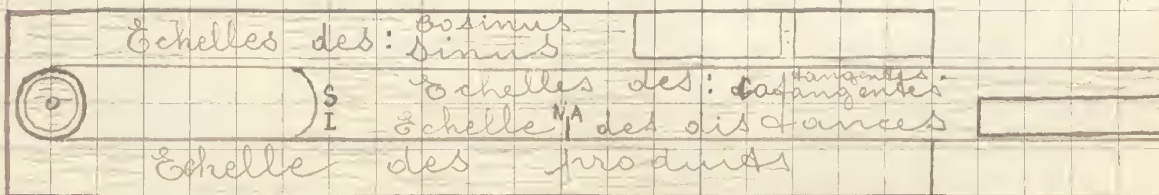 Echelles des: Cosinus
Sinus
S Echelles des: tangentes
Cotangentes
I Echelle N A des distances
Echelle des produits